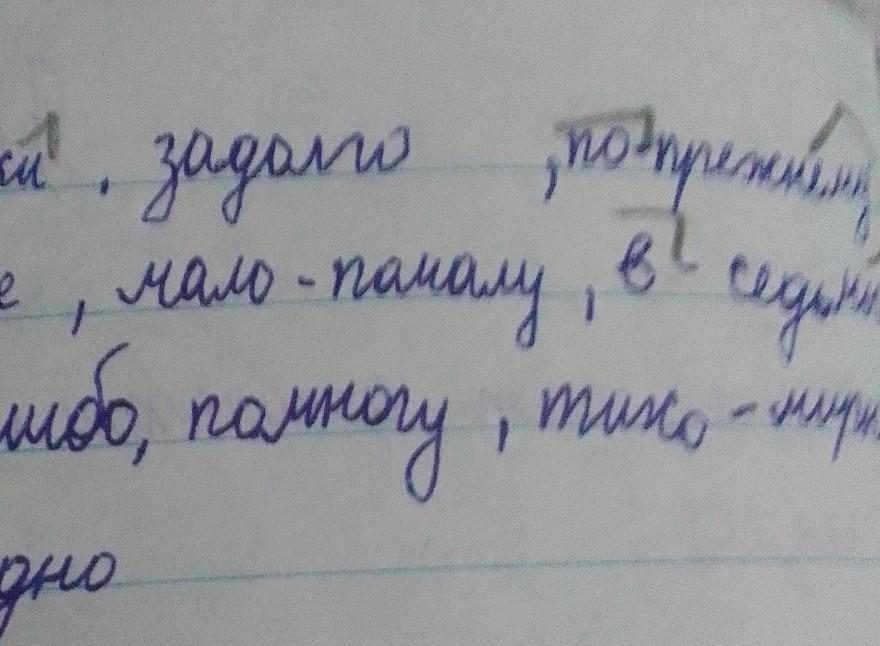 ки, задолго, по-прежнему
е, мало-помалу, в-седьмы
либо, помногу, тихо-мирн
дно